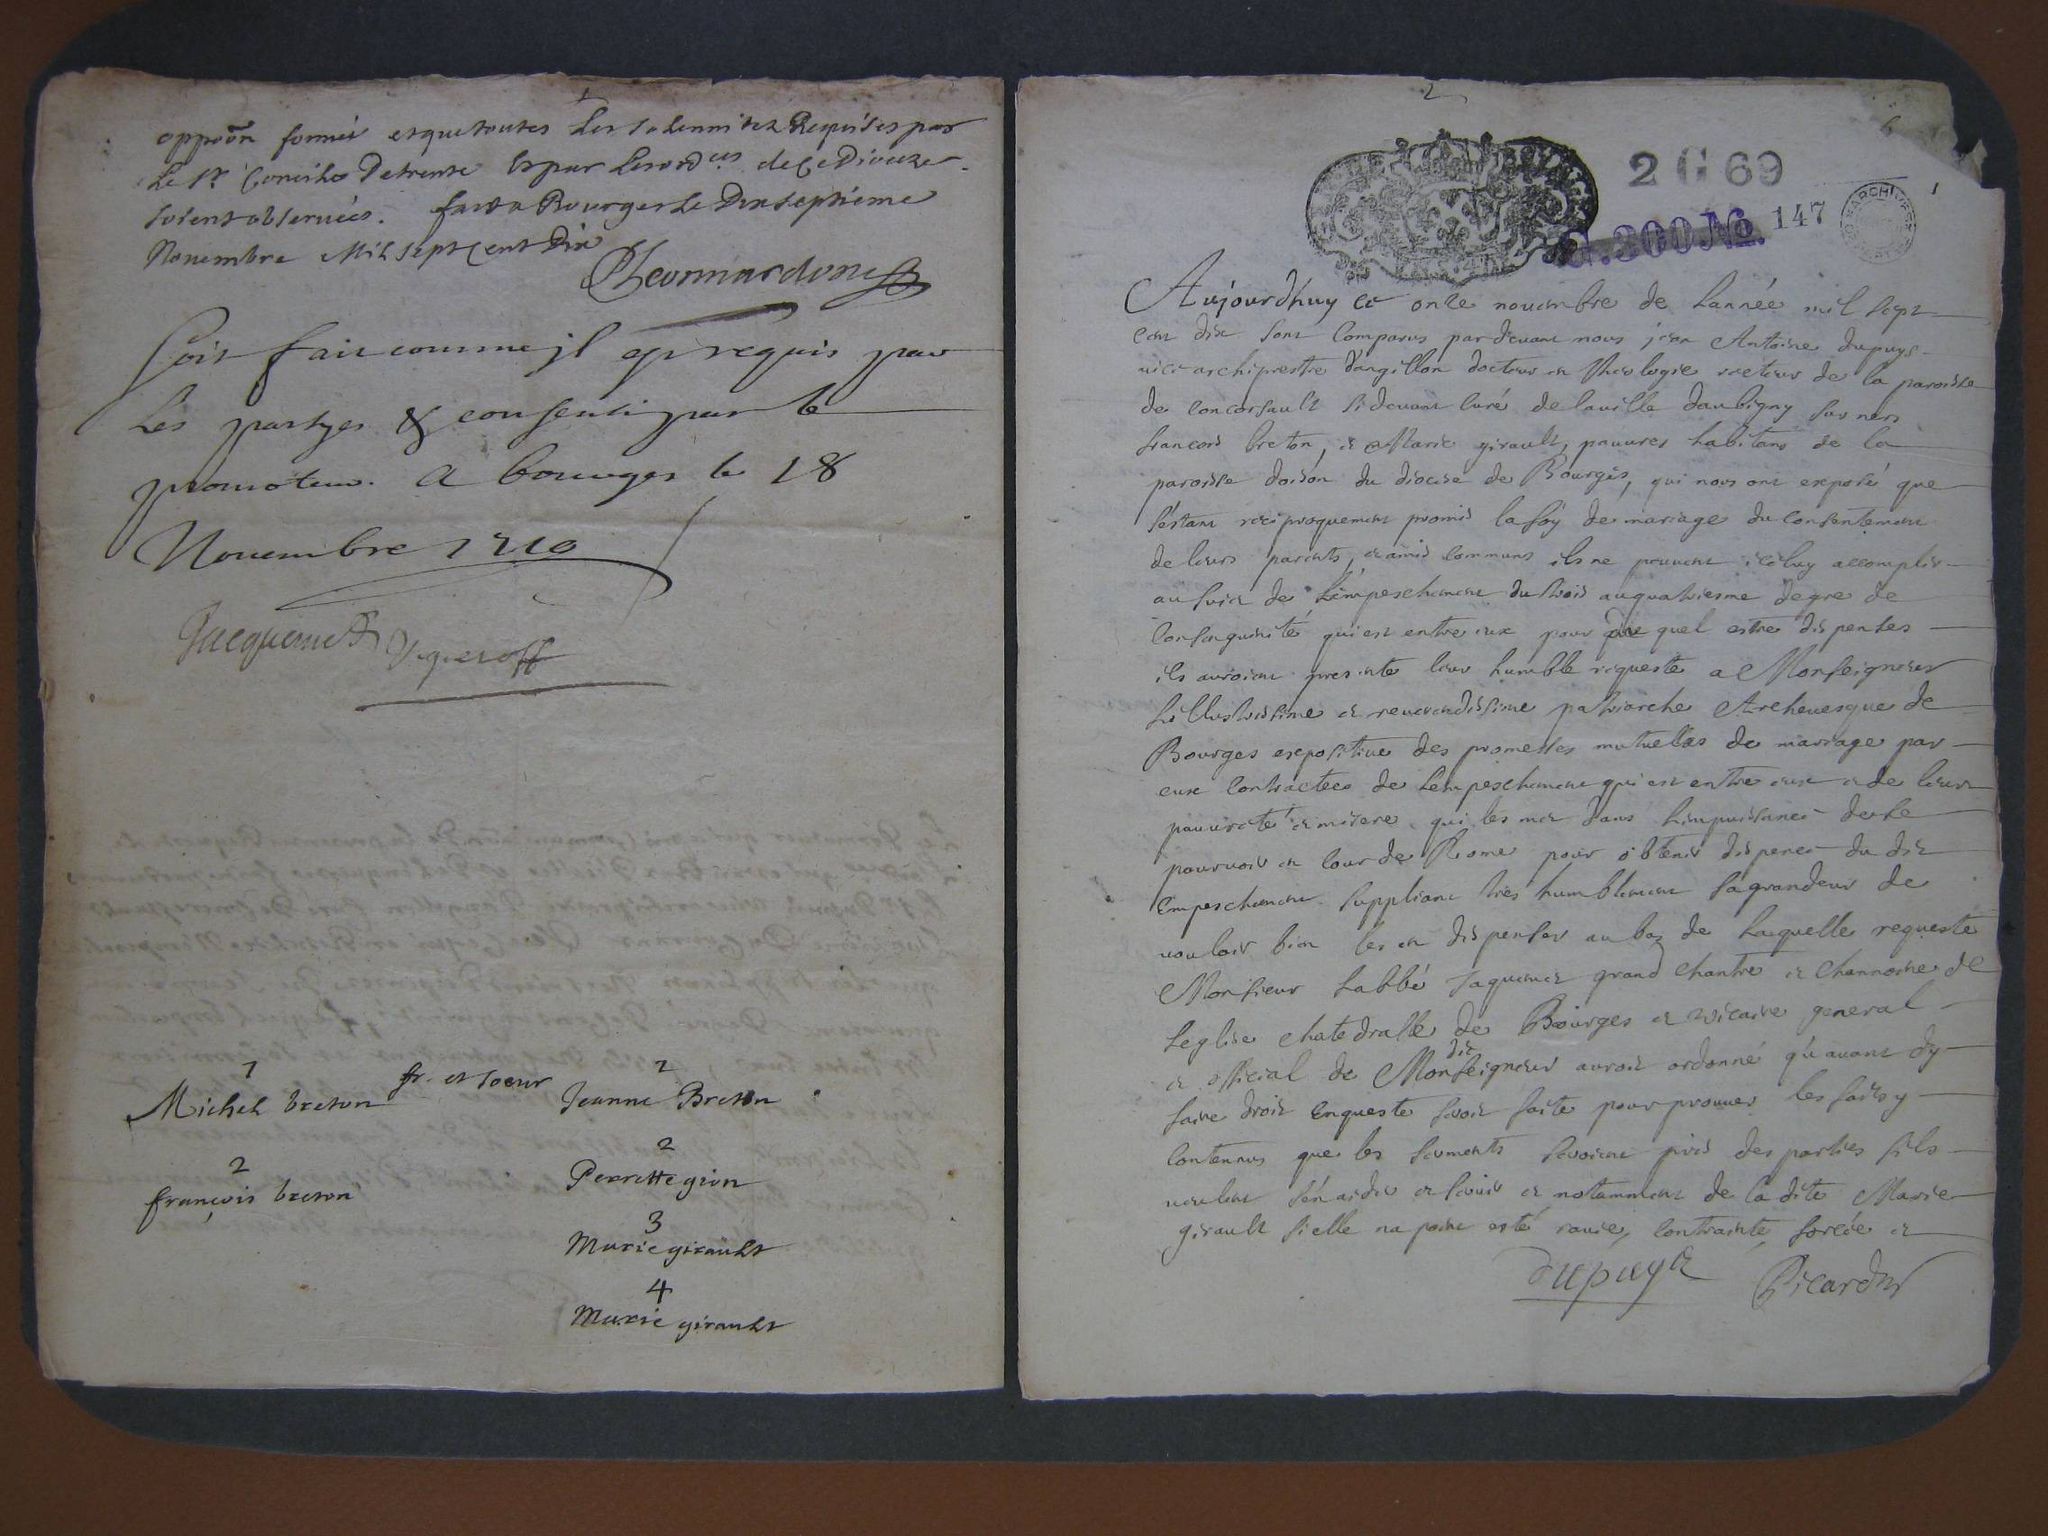 oppoōn formée et que toutes les solennitez Requises par
Le St Concile De trente et par les ordces de ce Dioceze
soient observées. fait a Bourges Le Dix septiéme
Novembre Mil sept Cent Dix
Soit fait comme il est requis par
les partyes & consenti par le
promoteur. A bourges le 18
Novembre 1710
Jacquemet
1
Michel breton
fr. et soeur
2
Jeanne Breton
2
françois breton
2
Perrette gion
3
Marie girault
4
Marie girault
2
2 G 69
G.300 No. 147
1
Aujourdhuy ce onze novembre de Lannée mil sept
cent dix sont Comparus pardevant nous jean Antoine dupuys
vice archiprestre dangillon docteur en Theologie recteur de la paroisse
de Concorsault Cidevant Curé de la ville daubigny sur ners
francois breton, et Marie girault, pauvres habitans de la
paroisse doison du diocese de Bourges, qui nous ont exposé que
séstant reciproquement promis la foy de mariage du consentement
de leurs parents, et amis communs ils ne peuvent iceluy accomplir
au suiet de Lémpeschement du trois au quatriesme degre de
Consanguinité qui est entre eux pour du quel estre dispenses
ils auroient presenté leur humble requeste a Monseigneur
Lillustrissime et reverendissime patriarche Archevesque de
Bourges expositive des promesses mutuelles de mariage par
eux Contractees de Lempeschement qui est entre eux et de leur
pauvreté et misere qui les met dans Limpuissance de se
pourvoir en Cour de Rome pour obtenir dispence du dit
Empeschement suppliant trés humblement sa grandeur de
vouloir bien les en dispenser au bas de Laquelle requeste
Monsieur Labbé Jaquemet grand Chantre et Channoine de
Leglise Chatedralle de Bourges et vicaire general
et official de mon dit seigneur auroit ordonné qu'avant dy
faire droit Enqueste seroit faite pour prouver les faits y
Contenus que les serments seroient pris des parties sils
veulent sén aider et servir et notamment de la dite Marie
girault si elle na point esté ravie, Contrainte, forcée et
dupuys Picardat